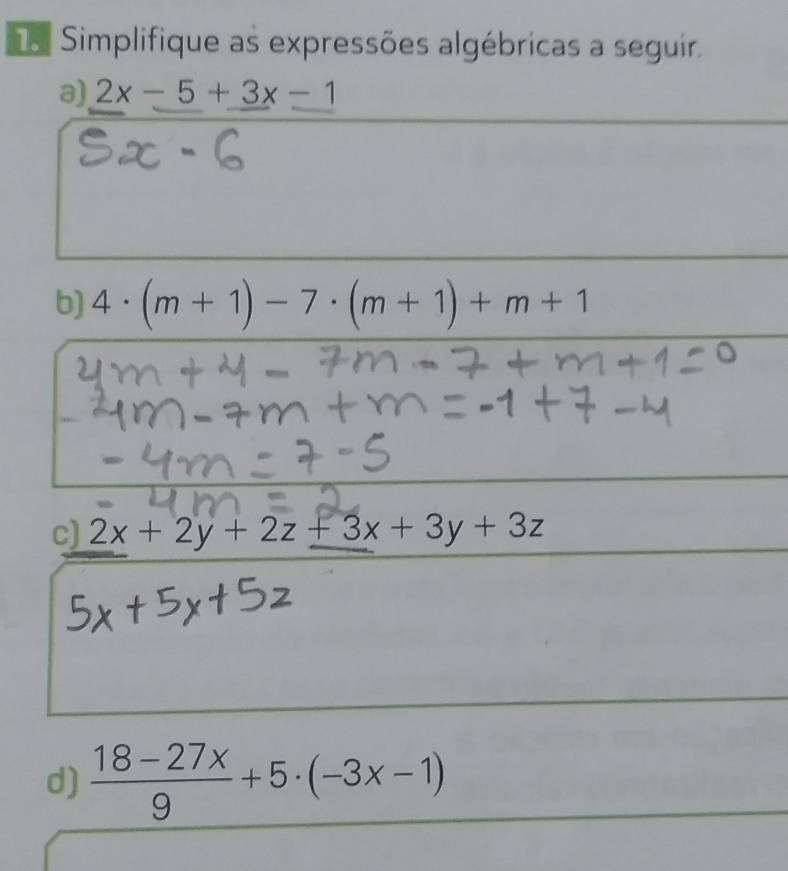 1. Simplifique as expressões algébricas a seguir.
a) 2x - 5 + 3x - 1
5x - 6
b) 4 · (m + 1) - 7 · (m + 1) + m + 1
4m + 4 - 7m - 7 + m + 1 = 0
- 4m - 7m + m = -1 + 7 - 4
- 4m = 7 - 5
- 4m = 2
c) 2x + 2y + 2z + 3x + 3y + 3z
5x + 5y + 5z
d) \frac{18 - 27x}{9} + 5 · (-3x - 1)